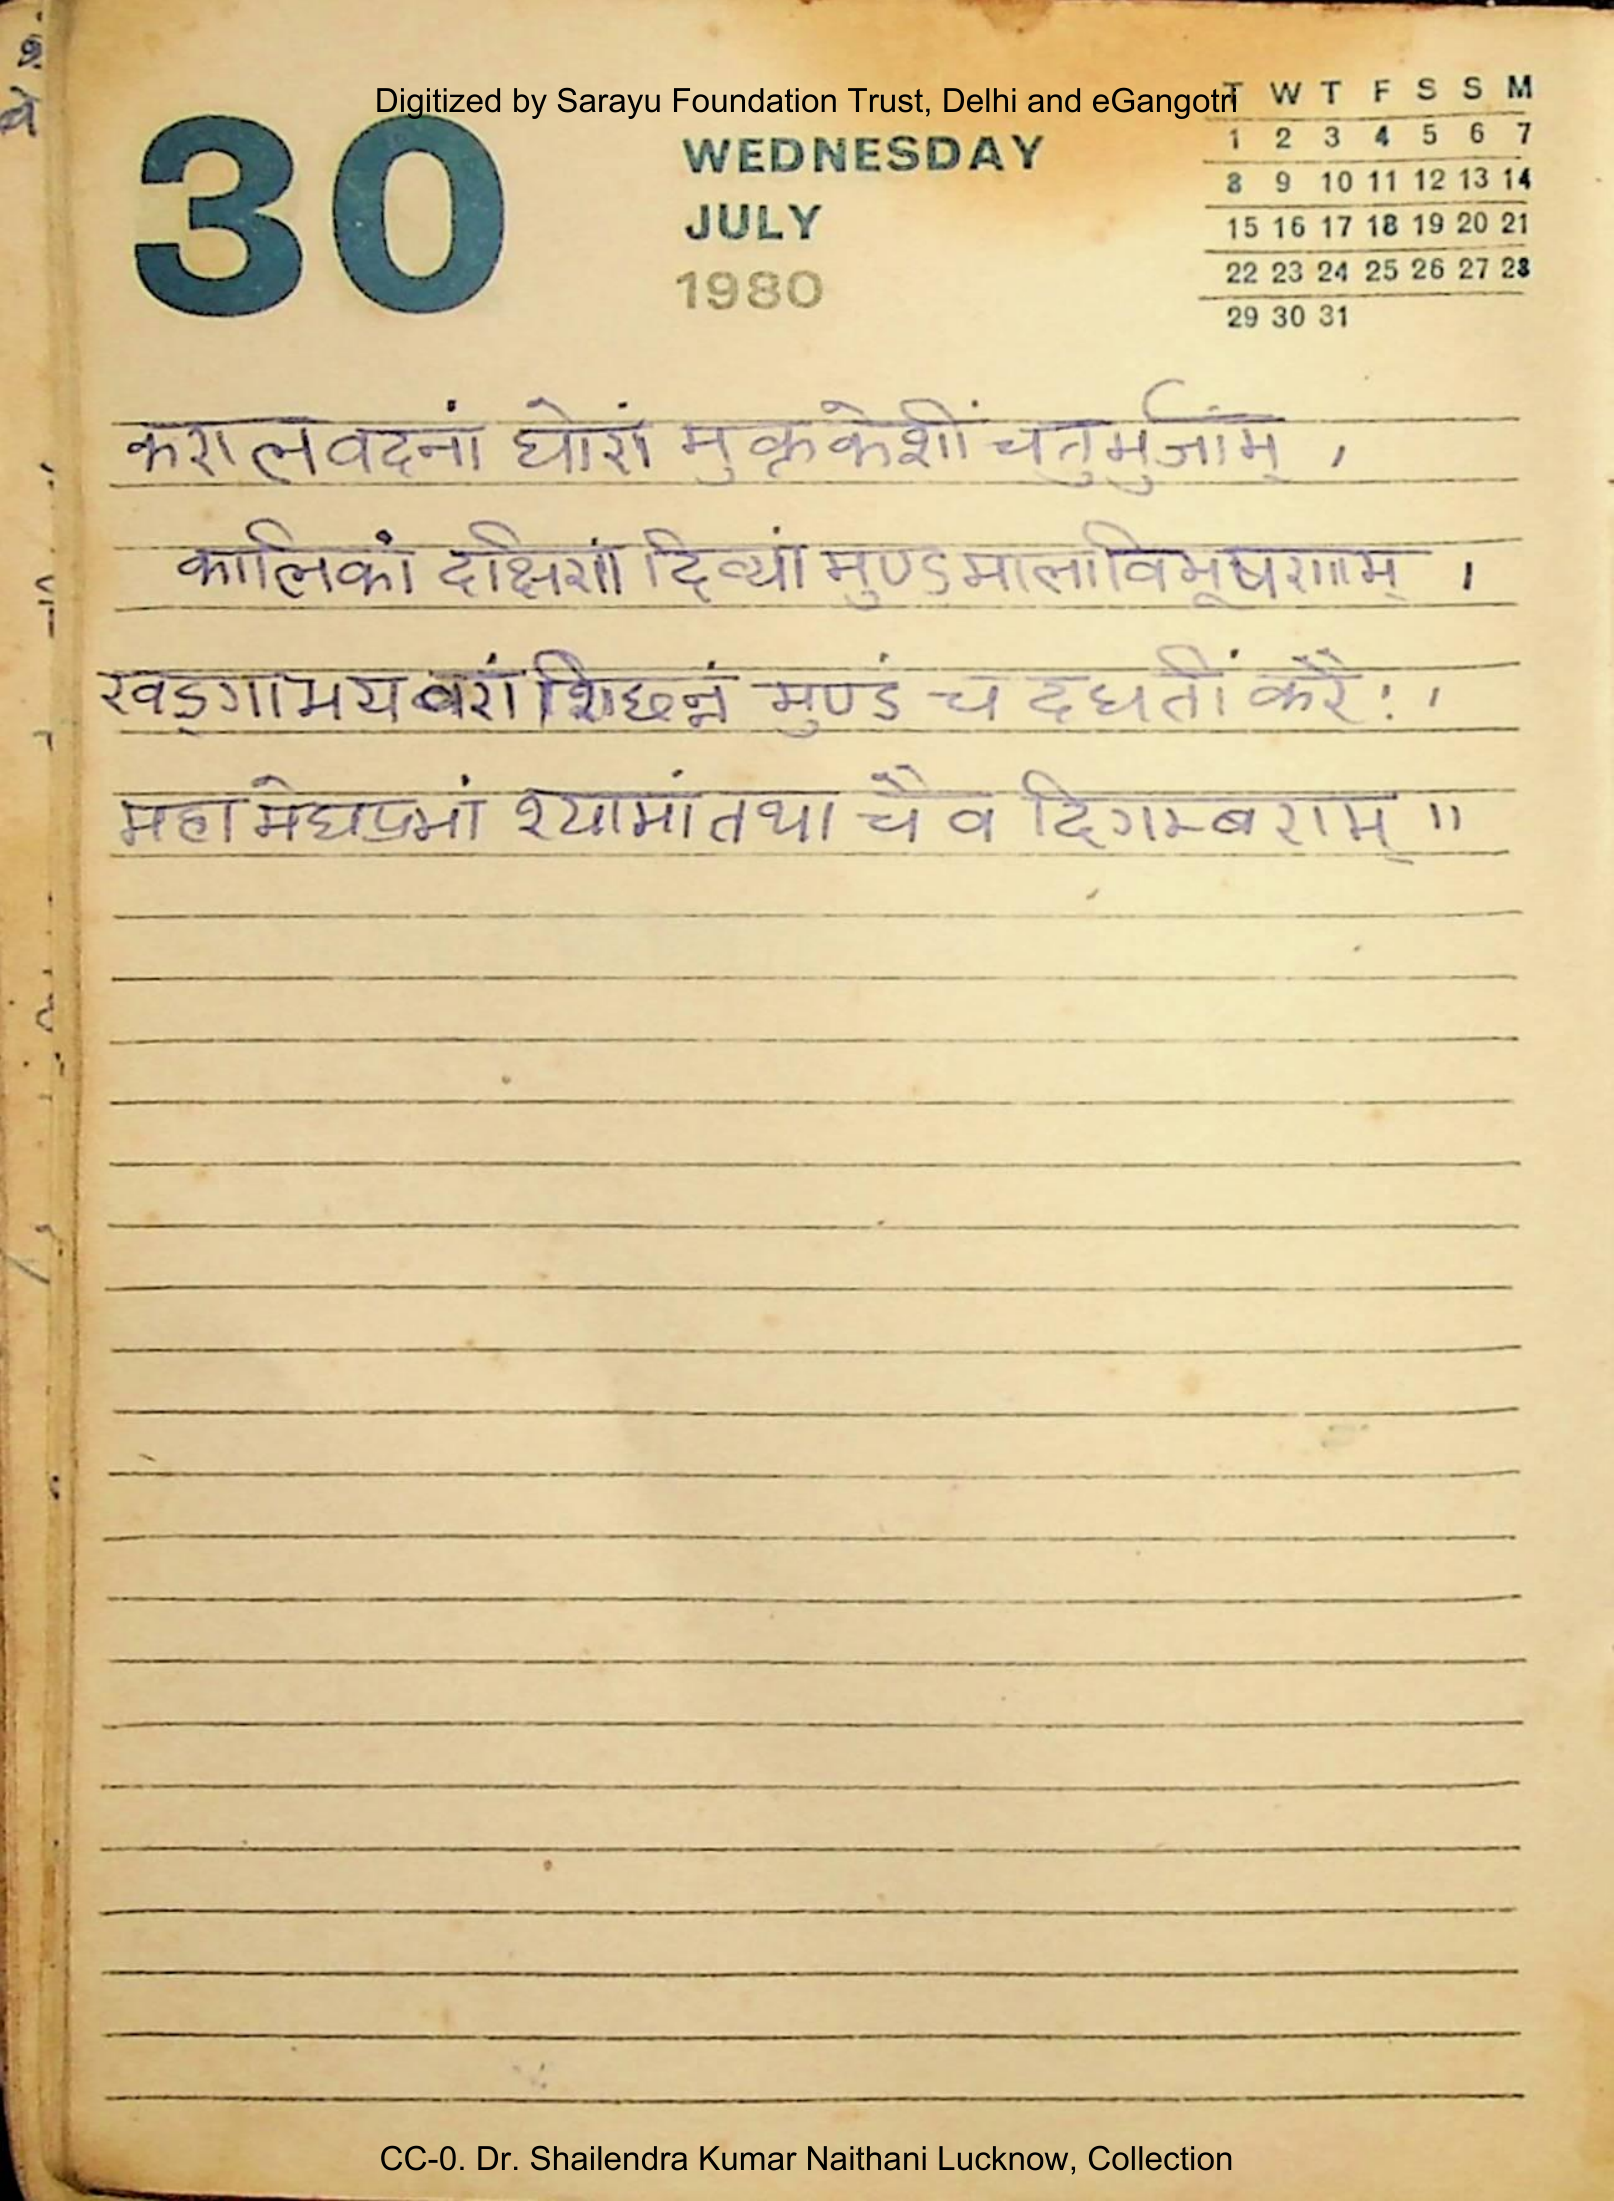 Digitized by Sarayu Foundation Trust, Delhi and eGangotri
30
WEDNESDAY
JULY
1980
T W T F S S M
1 2 3 4 5 6 7
8 9 10 11 12 13 14
15 16 17 18 19 20 21
22 23 24 25 26 27 28
29 30 31
करालवदनां घोरां मुक्तकेशीं चतुर्भुजाम् ।
कालिकां दक्षिणां दिव्यां मुण्डमालाविभूषणाम् ।
खड्गाभयवरां शिछन्नं मुण्डं च दधतीं करैः ।
महामेघप्रभां श्यामां तथा चैव दिगम्बराम् ॥
CC-0. Dr. Shailendra Kumar Naithani Lucknow, Collection